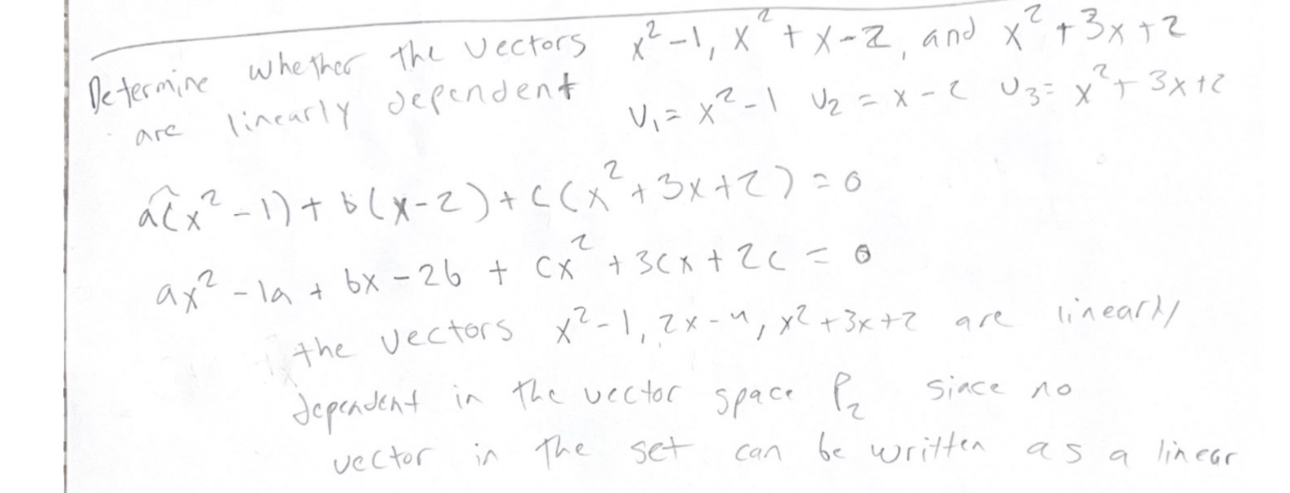 Determine whether the vectors x² - 1, x² + x - 2, and x² + 3x + 2
are linearly dependent v₁ = x² - 1 v₂ = x - 2 v₃ = x² + 3x + 2
a(x² - 1) + b(x - 2) + c(x² + 3x + 2) = 0
ax² - 1a + bx - 2b + cx² + 3cx + 2c = 0
the vectors x² - 1, 2x - 4, x² + 3x + 2 are linearly
dependent in the vector space P₂ since no
vector in the set can be written as a linear